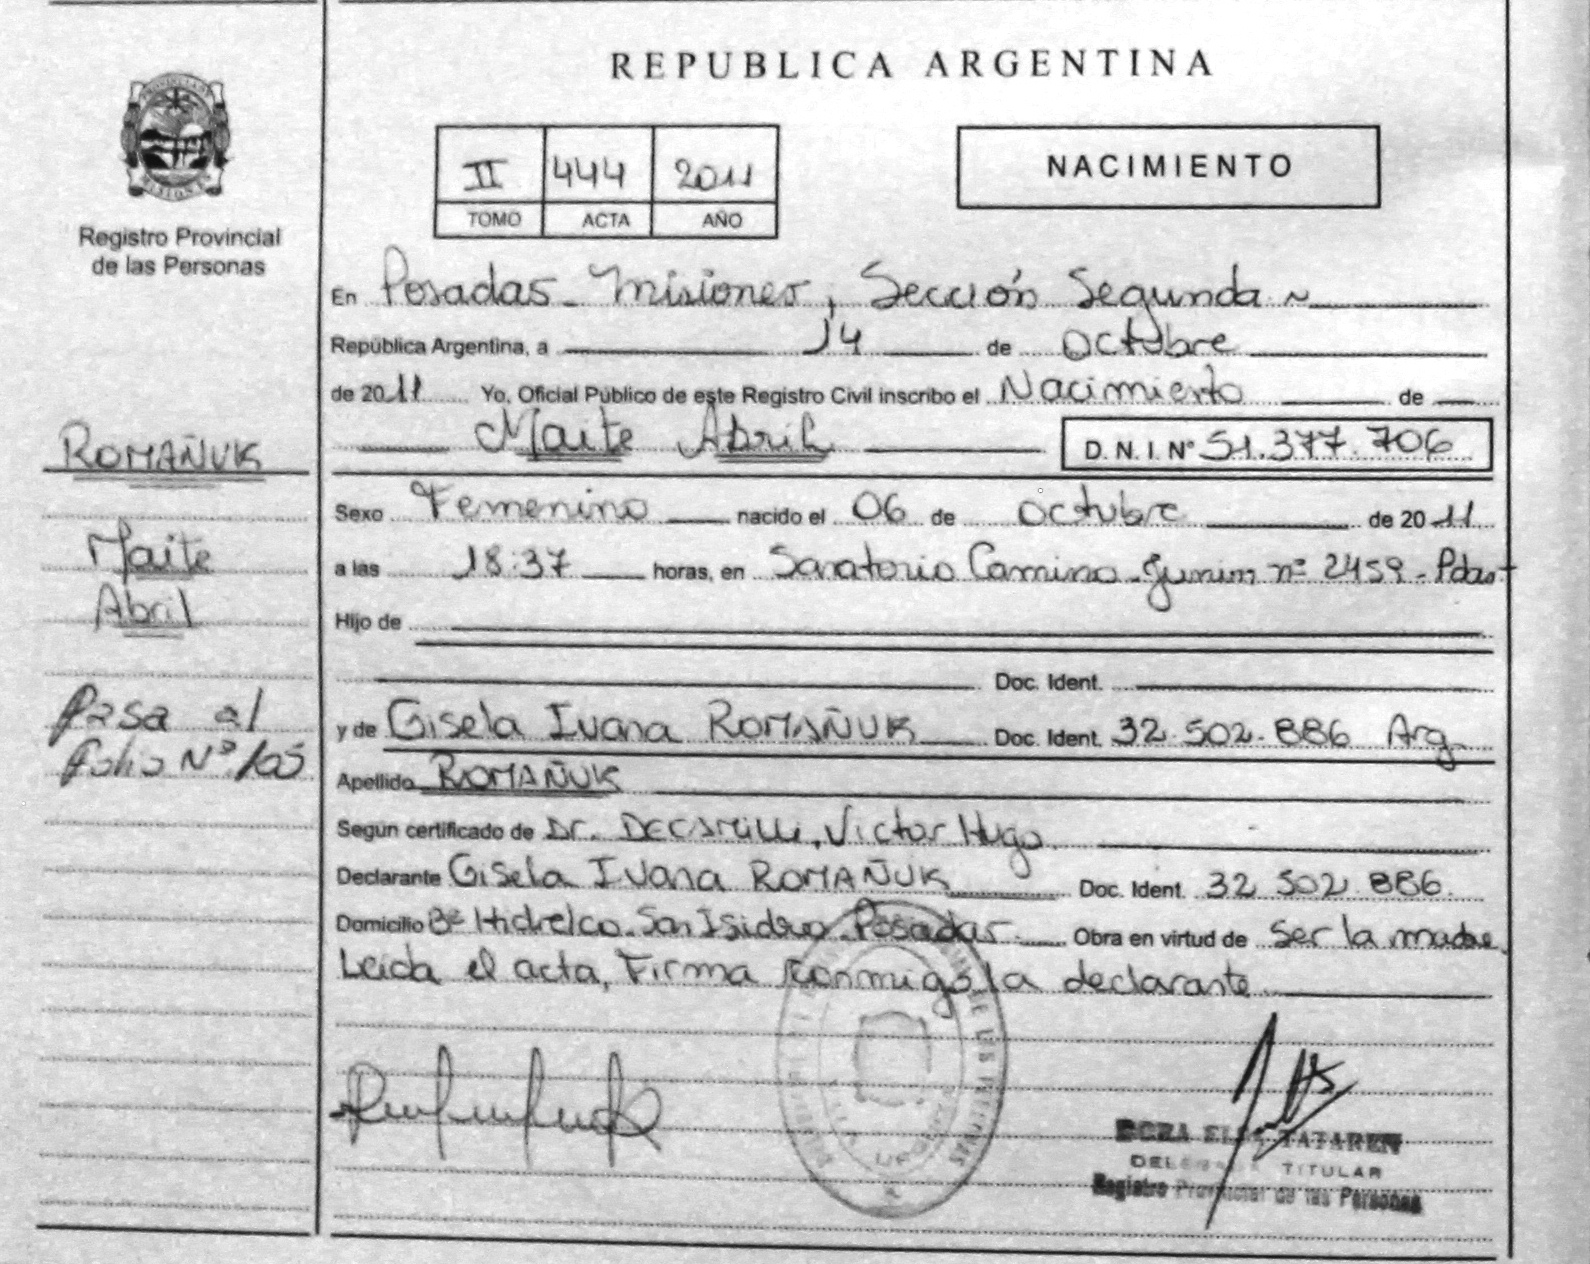 REPUBLICA ARGENTINA
II 444 2011
TOMO ACTA AÑO
NACIMIENTO
PROVINCIA DE
MISIONES
Registro Provincial
de las Personas
ROMAÑUK
Maite
Abril
Pasa al
folio Nº 105
En Posadas - Misiones, Sección Segunda
República Argentina, a 14 de octubre
de 2011 Yo, Oficial Público de este Registro Civil inscribo el Nacimiento de
Maite Abril D. N. I. Nº 51.377.706
Sexo Femenino nacido el 06 de octubre de 2011
a las 18:37 horas, en Sanatorio Camino - Junin nº 2459 - Pdas
Hijo de
Doc. Ident.
y de Gisela Ivana ROMAÑUK Doc. Ident. 32.502.886 Arg.
Apellido ROMAÑUK
Según certificado de Dr. DECAMILLI, Victor Hugo
Declarante Gisela Ivana ROMAÑUK Doc. Ident. 32.502.886
Domicilio Bº Hidrelco - San Isidro - Posadas Obra en virtud de ser la madre
Leida el acta, Firma conmigo la declarante
TATAREN
TITULAR
Registro Provincial de las Personas